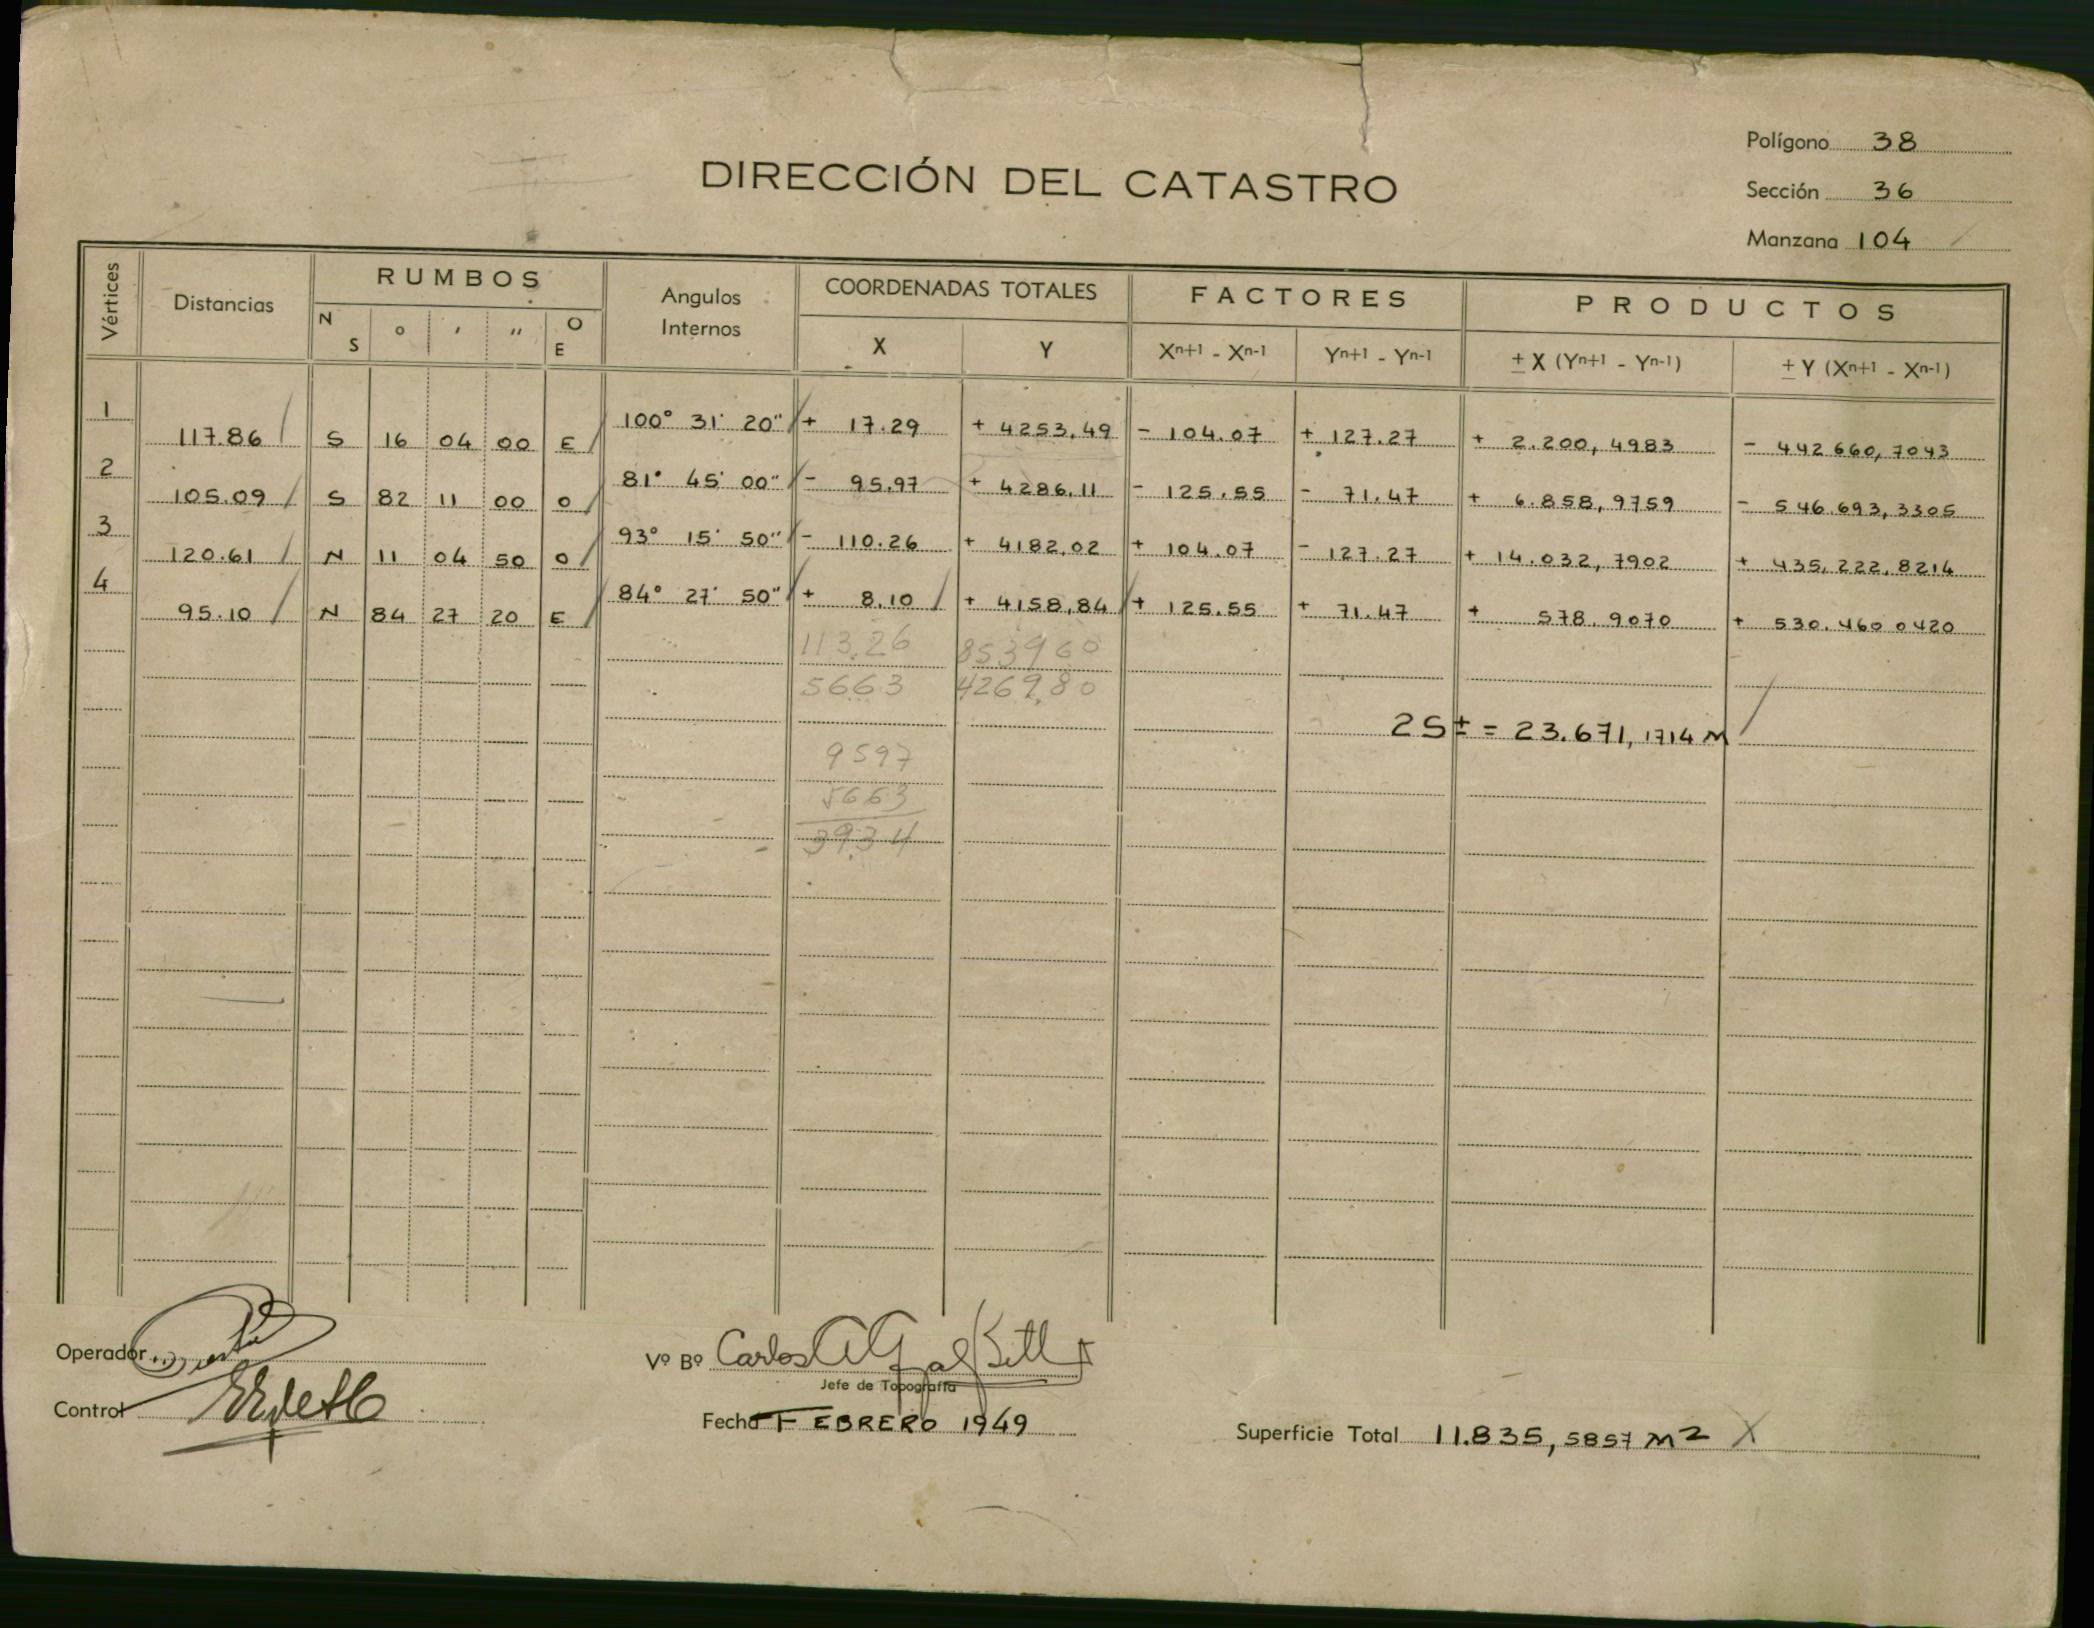 Polígono 38
DIRECCIÓN DEL CATASTRO
Sección 36
Manzana 104
Vértices Distancias RUMBOS Angulos Internos COORDENADAS TOTALES FACTORES PRODUCTOS
N S ° ′ ″ O E X Y Xn+1 - Xn-1 Yn+1 - Yn-1 ± X (Yn+1 - Yn-1) ± Y (Xn+1 - Xn-1)
1 117.86 S 16 04 00 E 100° 31' 20" + 17.29 + 4253,49 - 104.07 + 127.27 + 2.200,4983 - 442 660,7043
2 105.09 S 82 11 00 O 81° 45' 00" - 95.97 + 4286.11 - 125.55 - 71.47 + 6.858,9759 - 546.693,3305
3 120.61 N 11 04 50 O 93° 15' 50" - 110.26 + 4182,02 + 104.07 - 127.27 + 14.032,7902 + 435,222,8214
4 95.10 N 84 27 20 E 84° 27' 50" + 8.10 + 4158,84 + 125.55 + 71.47 + 578.9070 + 530.460 0420
113.26 853960
5663 4269,80
2S± = 23.671,1714 M
9597
5663
3934
Operador
Vº Bº Carlos
Jefe de Topografía
Control
Fecha FEBRERO 1949
Superficie Total 11.835,5857 M2 X